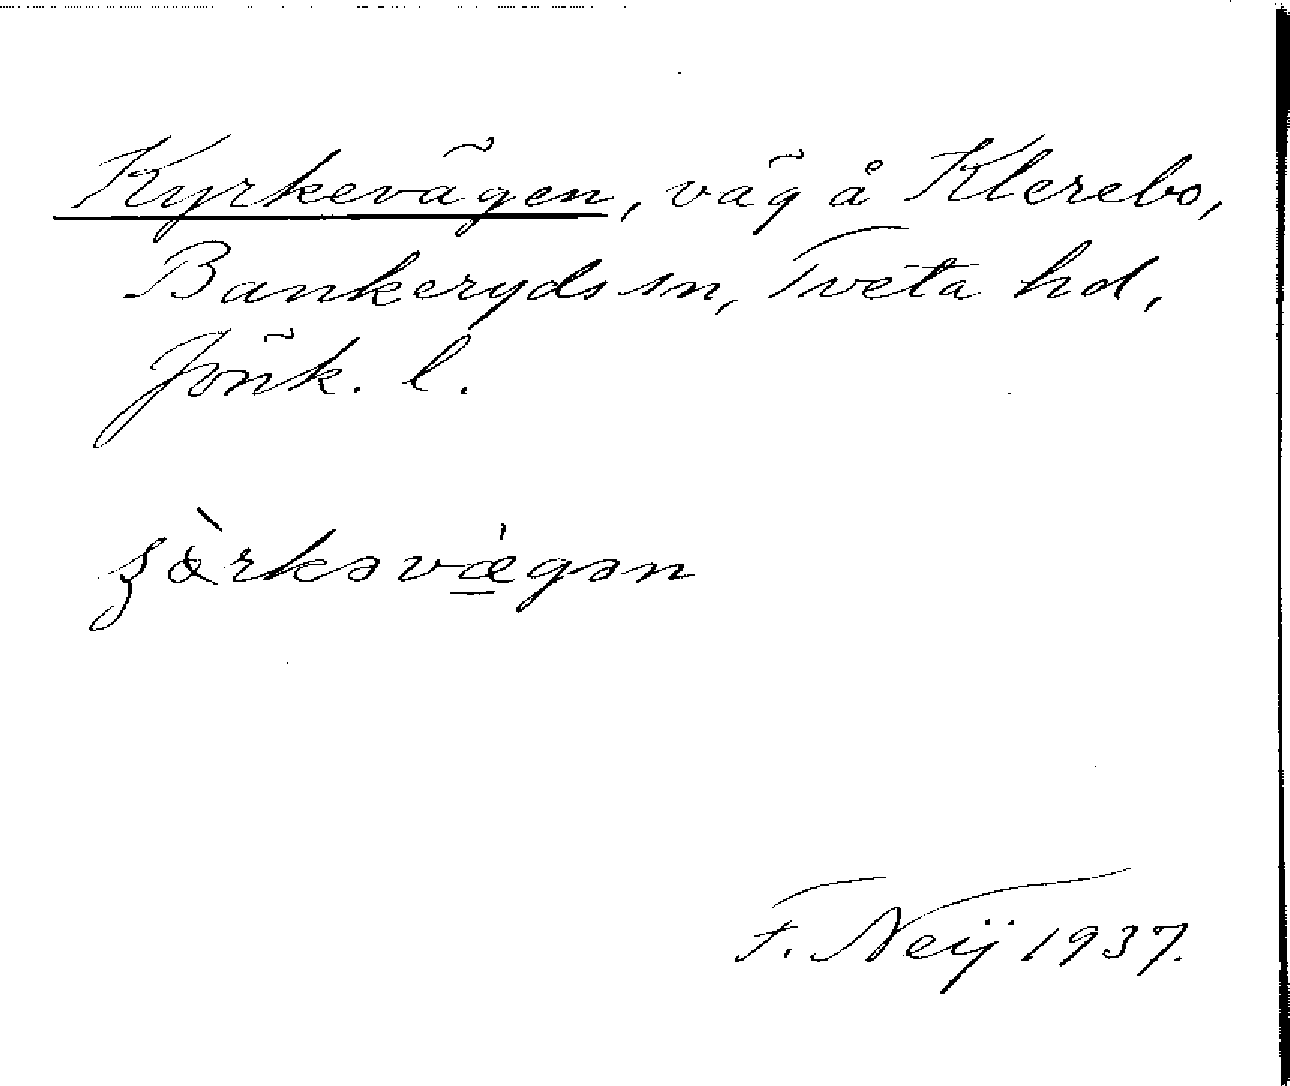 Kyrkevägen, väg å Klerebo,
Bankeryds sn, Tveta hd,
Jönk. l.
F. Neij 1937.